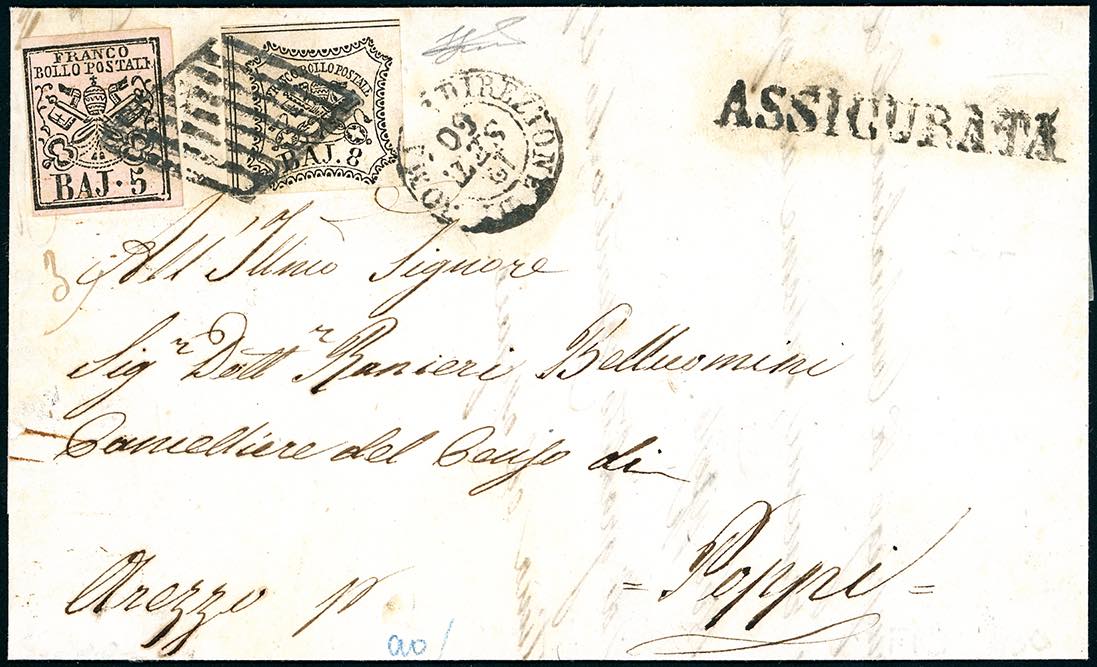 FRANCO
BOLLO POSTALE
BAJ. 5
FRANCO BOLLO POSTALE
BAJ. 8
DIREZIONE
SET
60
ROMA
ASSICURATA
All' Illmo Signore
Sigr Dottr Ranieri Belluomini
Cancelliere del Censo di
= Poppi =
Arezzo p